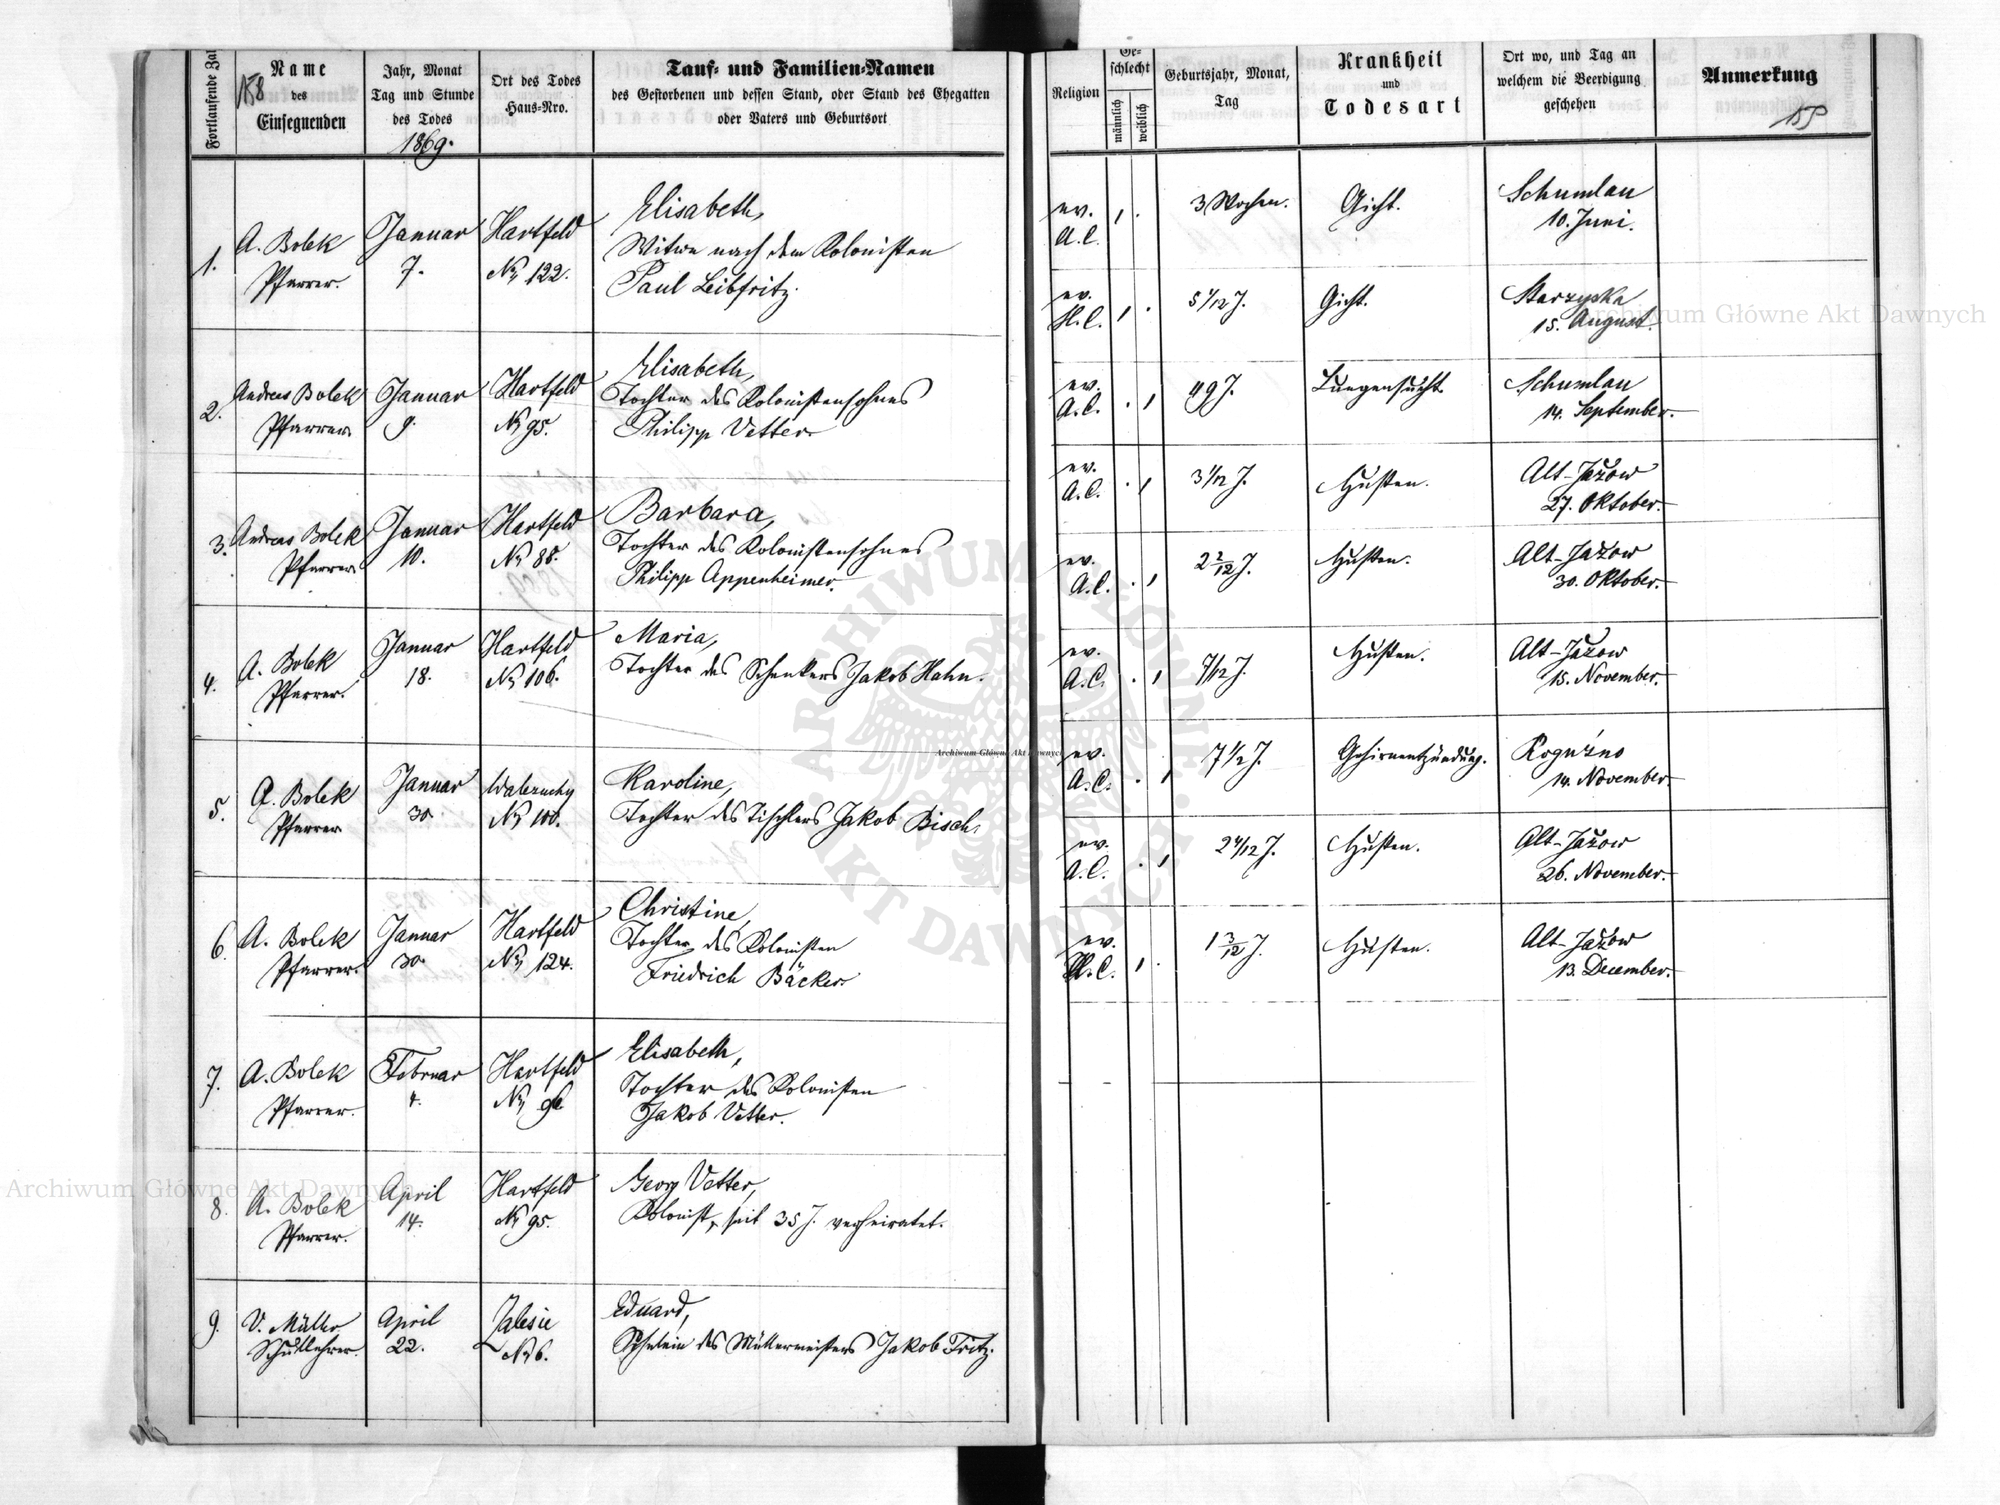 158
Fortlaufende Zal
Name
des
Einsegnenden
Jahr, Monat
Tag und Stunde
des Todes
1869.
Ort des Todes
Haus-Nro.
Tauf- und Familien-Namen
des Gestorbenen und dessen Stand, oder Stand des Ehegatten
oder Vaters und Geburtsort
1.
A. Bolek
Pfarrer.
Januar
7.
Hartfeld
No 122.
Elisabeth,
Witwe nach dem Kolonisten
Paul Leibfritz.
2.
Andreas Bolek
Pfarrer.
Januar
9.
Hartfeld
No 95.
Elisabeth,
Tochter des Kolonistensohnes
Philipp Vetter.
3.
Andreas Bolek
Pfarrer.
Januar
10.
Hartfeld
No 88.
Barbara,
Tochter des Kolonistensohnes
Philipp Appenheimer.
4.
A. Bolek
Pfarrer.
Januar
18.
Hartfeld
No 106.
Maria,
Tochter des Schenkers Jakob Hahn.
5.
A. Bolek
Pfarrer
Januar
30.
No 100.
Karoline,
Tochter des Tischlers Jakob Bisch.
6.
A. Bolek
Pfarrer.
Januar
30.
Hartfeld
No 124.
Christine,
Tochter des Kolonisten
Friedrich Bäcker.
7.
A. Bolek
Pfarrer.
Februar
4.
Hartfeld
No 96.
Elisabeth,
Tochter des Kolonisten
Jakob Vetter.
8.
A. Bolek
Pfarrer.
April
14.
Hartfeld
No 95.
Georg Vetter,
Kolonist, seit 35 J. verheiratet.
9.
V. Müller
Schullehrer.
April
22.
Zalesie
No 6.
Eduard,
Söhnlein des Müllermeisters Jakob Fritz.
Religion
Ge-
schlecht
männlich
weiblich
Geburtsjahr, Monat,
Tag
Krankheit
und
Todesart
Ort wo, und Tag an
welchem die Beerdigung
geschehen
Anmerkung
ev.
A.C.
3 Wochen.
Gicht.
Schumlau
10. Juni.
ev.
H.C.
5 1/12 J.
Gicht.
Starzyska
15. August.
ev.
A.C.
49 J.
Lungensucht
Schumlau
14. September.
ev.
A.C.
3 1/12 J.
Husten.
Alt-Jażow
27. Oktober.
ev.
A.C.
2 2/12 J.
Husten.
Alt-Jażow
30. Oktober.
ev.
A.C.
7/12 J.
Husten.
Alt-Jażow
15. November.
ev.
A.C.
7 1/2 J.
Gehirnentzündung.
Roguźno
14. November.
ev.
A.C.
2 4/12 J.
Husten.
Alt-Jażow
26. November.
ev.
H.C.
1 3/12 J.
Husten.
Alt-Jażow
13. December.
Archiwum Główne Akt Dawnych
Archiwum Główne Akt Dawnych
Archiwum Główne Akt Dawnych
ARCHIWUM GŁÓWNE AKT DAWNYCH